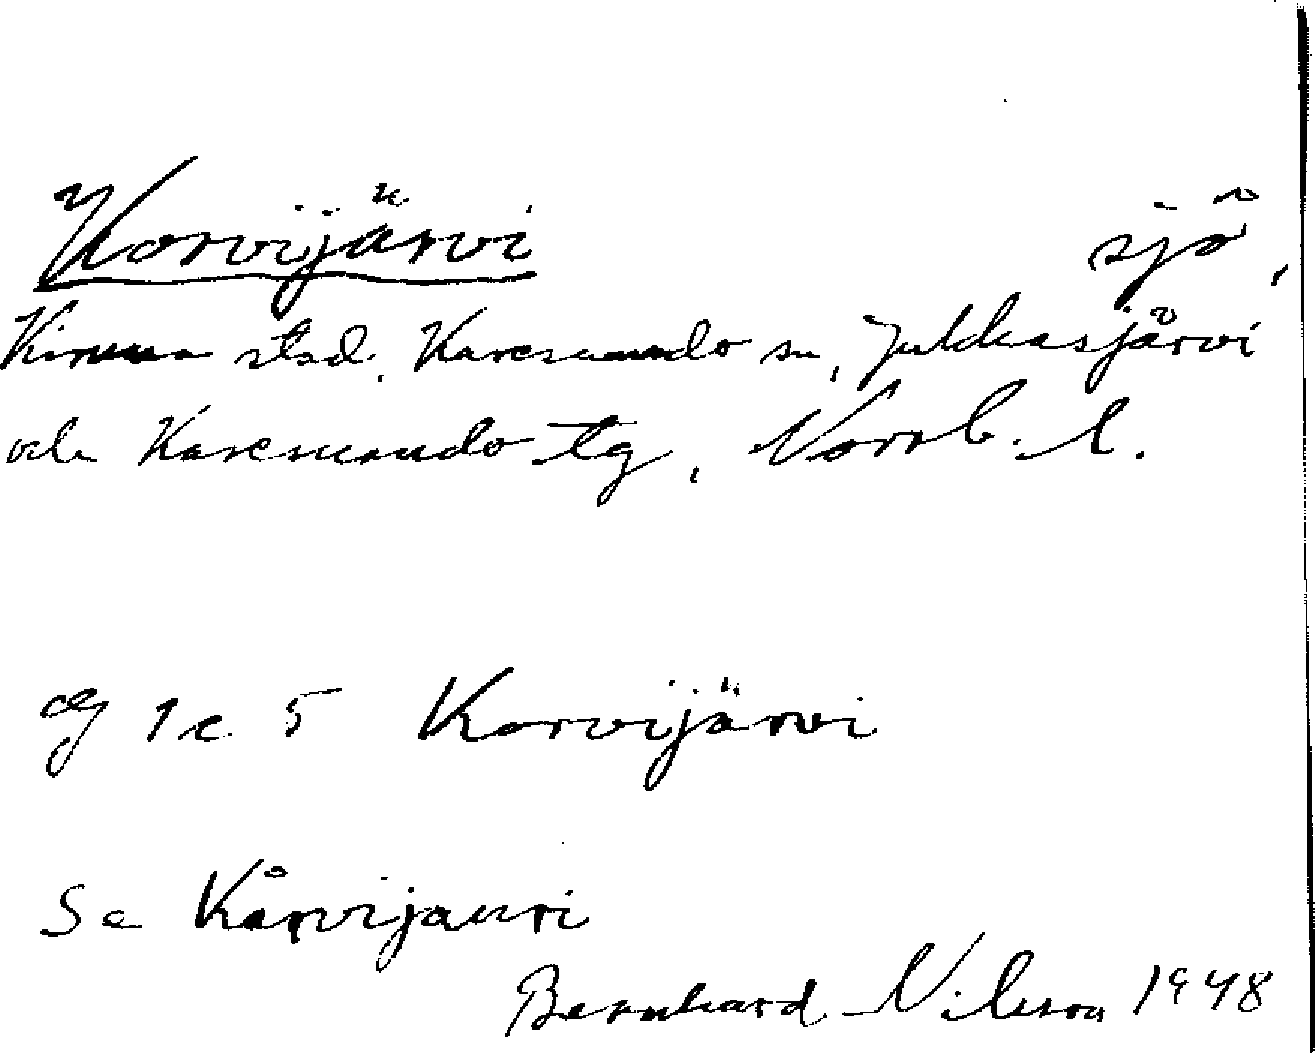 Korvijärvi sjö,
Kiruna stad, Karesuando sn, Jukkasjärvi
och Karesuando tg, Norrb. l.
og 1 c 5 Korvijärvi
Sa Kårvijauri
Bernhard Nilsson 1948